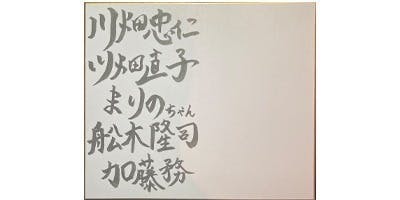 川畑忠仁
川畑直子
まりのちゃん
舩木隆司
加藤務